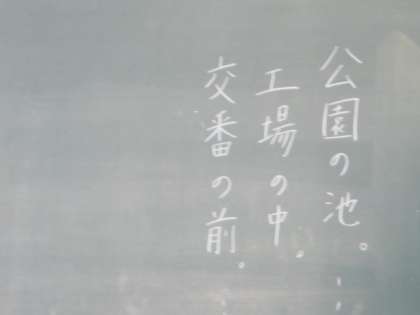 公園の池。
工場の中。
交番の前。